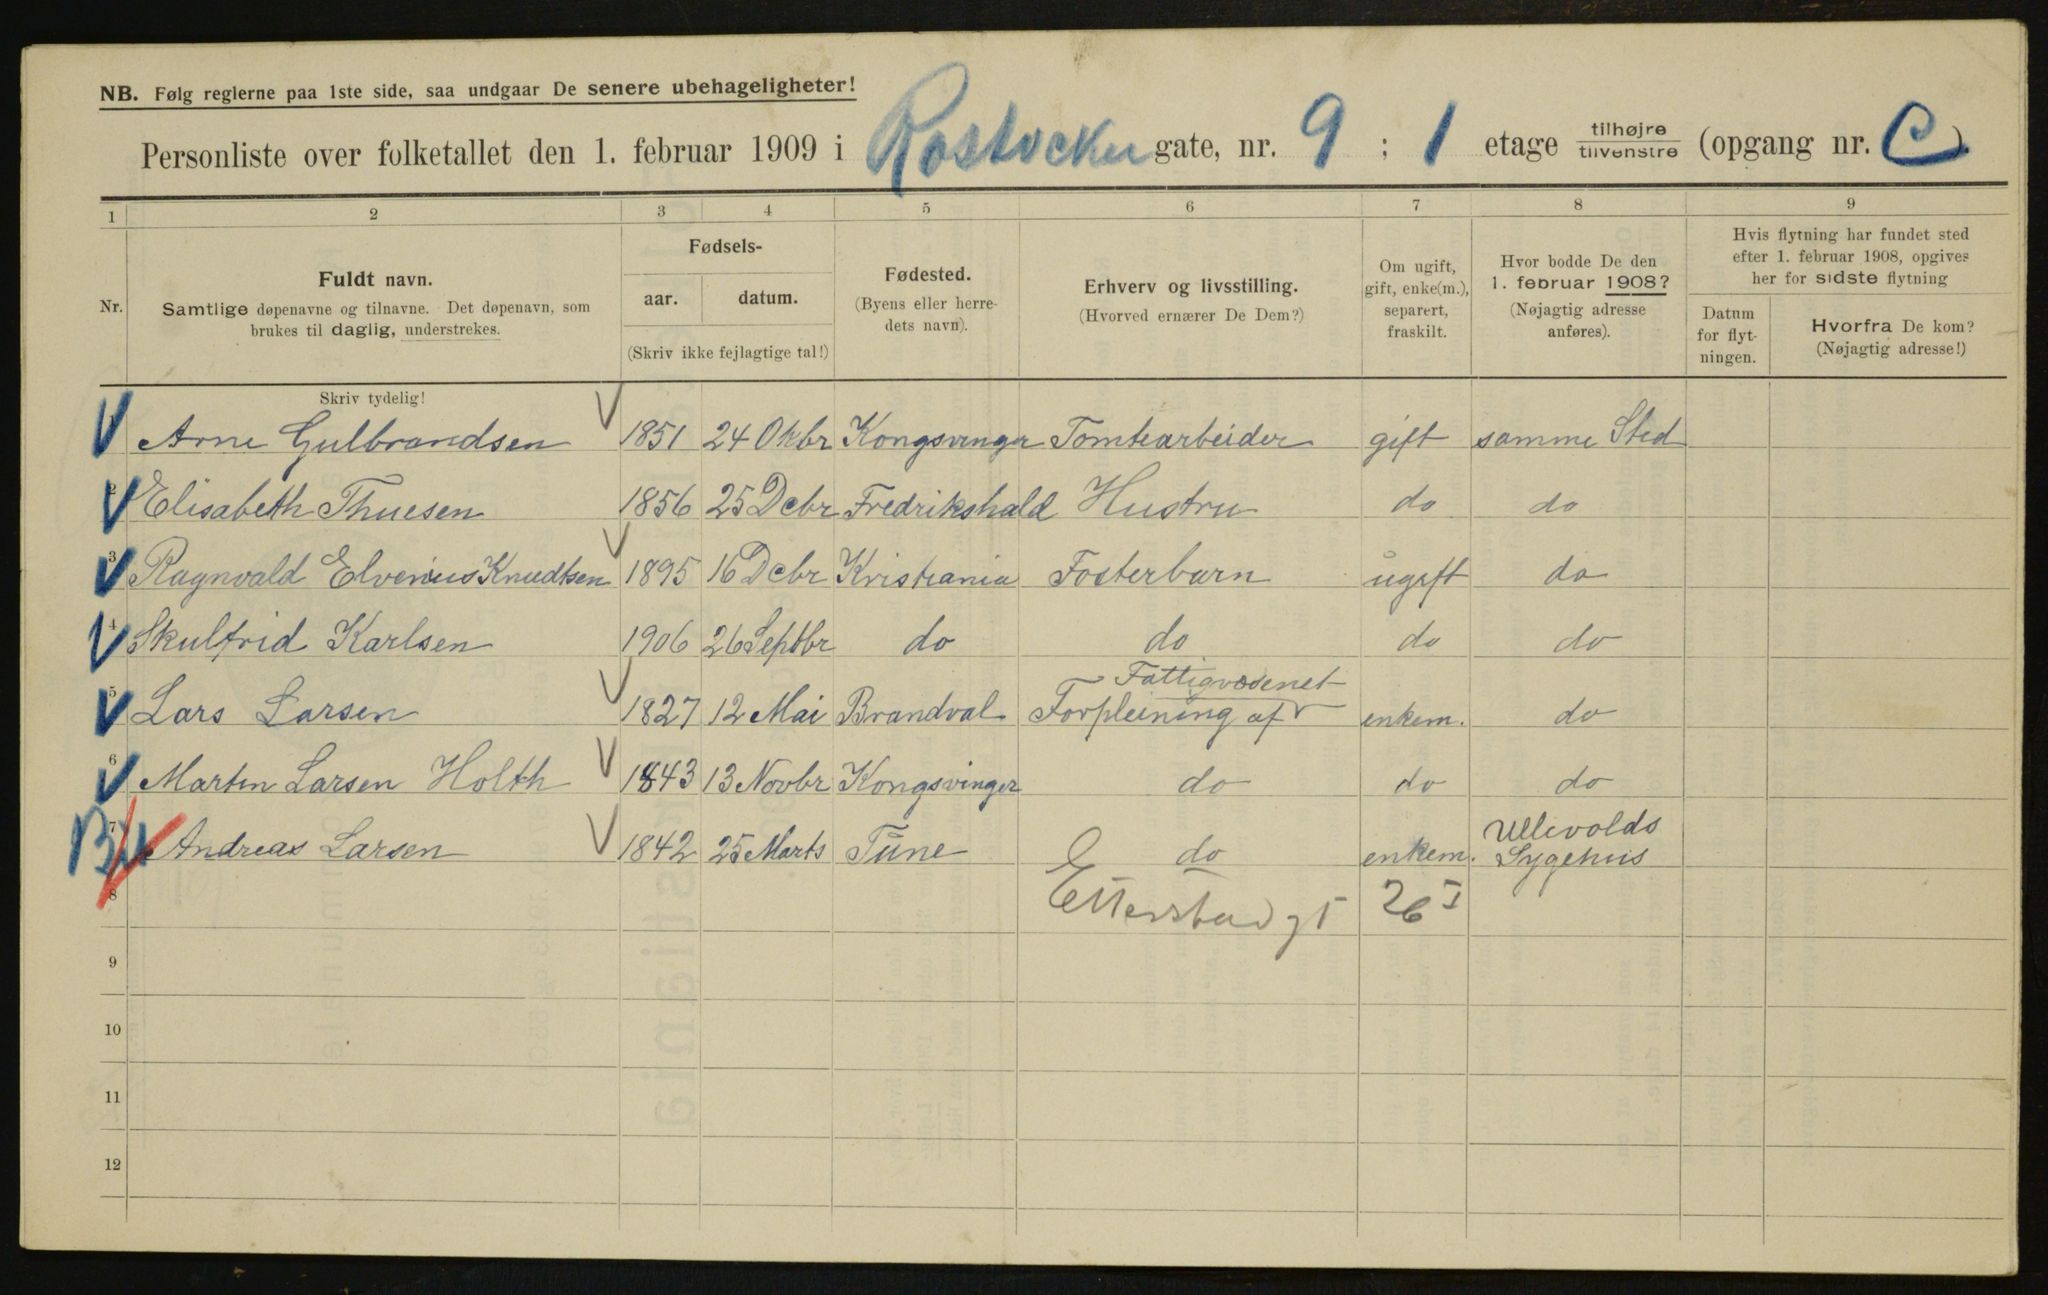 NB. Følg reglerne paa 1ste side, saa undgaar De senere ubehageligheter!
Personliste over folketallet den 1. februar 1909 i Rostocker gate, nr. 9 ; 1 etage tilhøjre tilvenstre (opgang nr. C).
1 2 3 4 5 6 7 8 9
Nr. Fuldt navn. Samtlige døpenavne og tilnavne. Det døpenavn, som brukes til daglig, understrekes.
Fødsels- aar. datum. (Skriv ikke fejlagtige tal!)
Fødested. (Byens eller herredets navn).
Erhverv og livsstilling. (Hvorved ernærer De Dem?)
Om ugift, gift, enke(m.), separert, fraskilt.
Hvor bodde De den 1. februar 1908? (Nøjagtig adresse anføres).
Hvis flytning har fundet sted efter 1. februar 1908, opgives her for sidste flytning
Datum for flytningen. Hvorfra De kom? (Nøjagtig adresse!)
Skriv tydelig!
Arne Gulbrandsen 1851 24 Okbr Kongsvinger Tomtearbeider gift samme Sted
2 Elisabeth Thuesen 1856 25 Dcbr Fredrikshald Hustru do do
3 Ragnvald Elvenius Knudtsen 1895 16 Dcbr Kristiania Fosterbarn ugift do
4 Skulfrid Karlsen 1906 26 Septbr do do do do
Fattigvæsenet
5 Lars Larsen 1827 12 Mai Brandval Forpleining af enkem. do
6 Martin Larsen Holth 1843 13 Novbr Kongsvinger do do do
7 Andreas Larsen 1842 25 Marts Tune do enkem. Ullevolds Sygehus
8 Etterstad gt 26 I
9
10
11
12